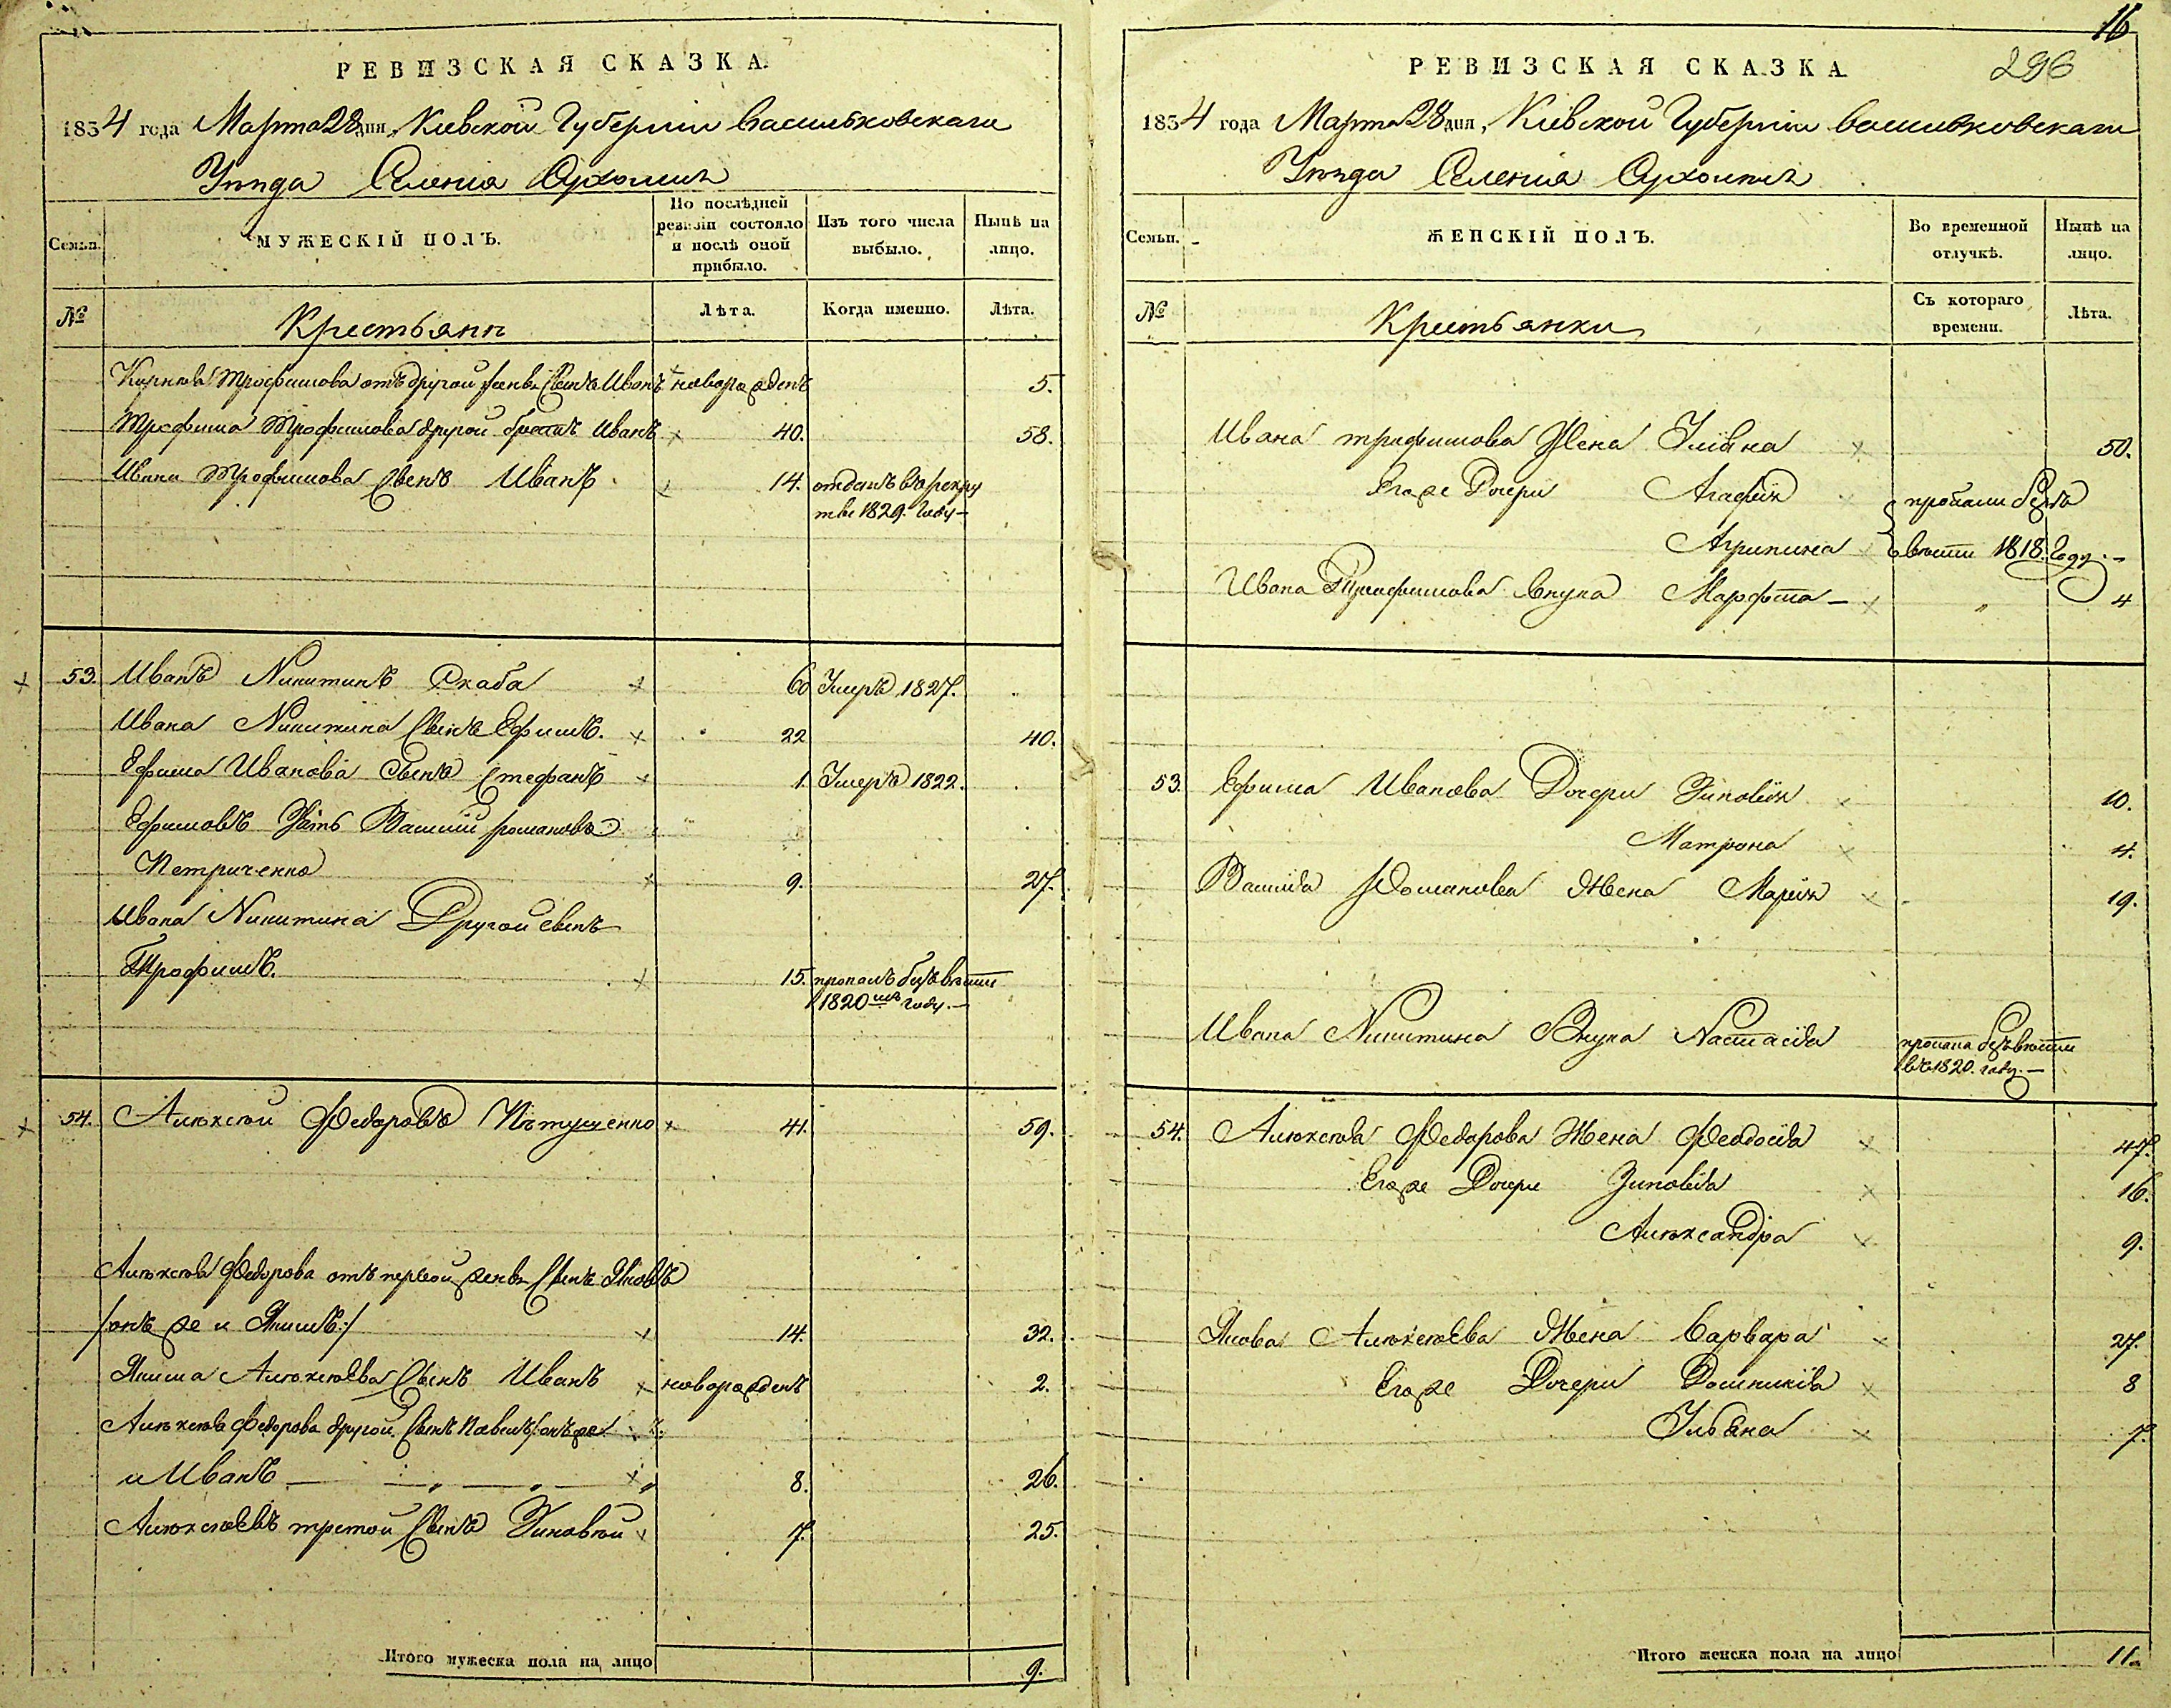 РЕВИЗСКАЯ СКАЗКА.
1834 года Марта 28 дня, Киевской Губернии Васильковскаго
Уезда Селенія
Семьи.
МУЖЕСКІЙ ПОЛЪ.
По послѣдней ревизіи состояло и послѣ оной прибыло.
Изъ того числа выбыло.
Нынѣ на лицо.
№
Крестьяне
Лѣта.
Когда именно.
Лѣта.
Трофимова отъ другой жены Сынъ Иванъ новорожденъ 5.
Трофима Трофимова другой братъ Иванъ 40. 58.
Ивана Трофимова Сынъ Иванъ 14. отданъ в рекру
тве 1829. году
53. Иванъ Никитинъ Скаба 60 Умеръ 1827.
Ивана Никитина Сынъ Ефимъ. 22 40.
Ефима Иванова Сынъ Стефанъ 1. Умеръ 1822.
Ефимовъ Зять Василій Романовъ
Петриченко 9. 27.
Ивана Никитина Другой сынъ
Трофимъ. 15. пропалъ безъ вести
1820мъ году.
54. Алексей Федоровъ 41. 59.
Алексея Федорова отъ первой жены Сынъ Яковъ
/онъ же и Якимъ:/ 14. 32.
Якима Алексеева Сынъ Иванъ новорожденъ 2.
Алексея Федорова другой Сынъ Павелъ /:онъ же
и Иванъ 8. 26.
Алексеевъ третой Сынъ Зиновей 7. 25.
Итого мужеска пола на лицо 9.
16
296
РЕВИЗСКАЯ СКАЗКА
1834 года Марта 28 дня, Кіевской Губерніи Васильковскаго
Уезда Селенія
Семьи.
ЖЕНСКІЙ ПОЛЪ.
Во временной отлучкѣ.
Нынѣ на лицо.
№
Крестьянки
Съ котораго времени.
Лѣта.
Ивана Трофимова Жена 50.
Егоже Дочери Агафія пропали безъ
Агрипина вести 1818. Году.
Ивана Трофимова Внука Марфа 4
53. Ефима Иванова Дочери Зиновія 10.
Матрона 4.
Василія Романова Жена Марія 19.
Ивана Никитина Внука Настасія пропала безъ вести
въ 1820. году.
54. Алексея Федорова Жена Феодосія 47.
Егоже Дочери Зиновія 16.
Александра 9.
Якова Алексеева Жена Варвара 27.
Егоже Дочери Домникія 8
Ульяна 7.
Итого женска пола на лицо 11.